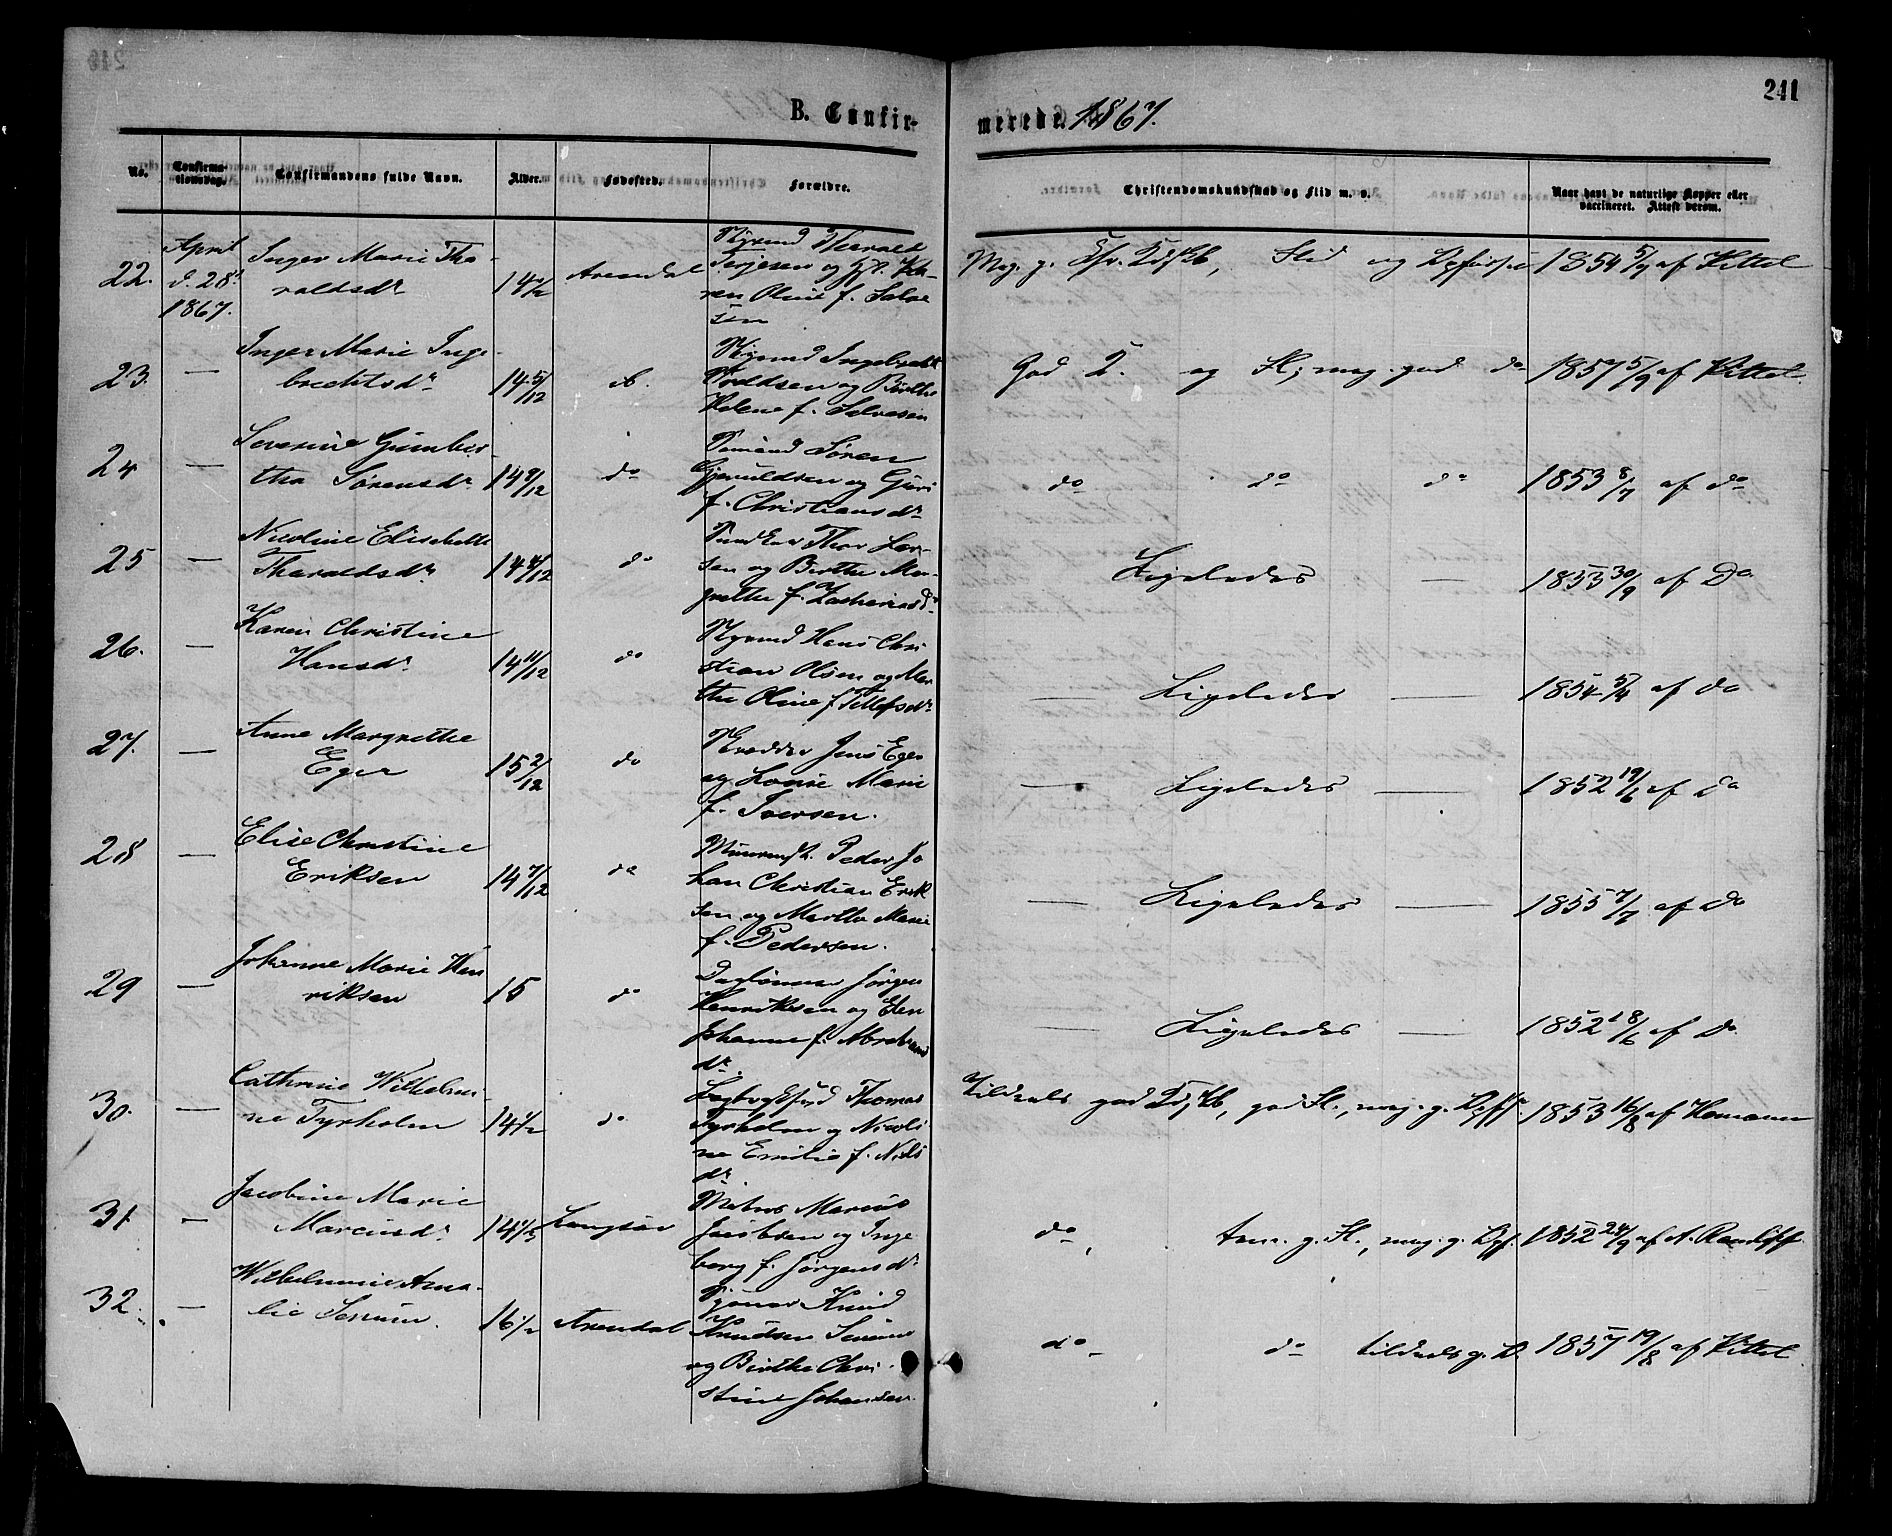 241
B. Confirmerede 1867.
No.
Confirmationsdag.
Confirmandens fulde Navn.
Alder.
Fødested.
Forældre.
Christendomskundskab og Flid m. v.
Naar havt de naturlige Kopper eller vaccineret. Attest derom.
22.
April
d. 28d
1867.
Inger Marie Tha-
raldsdr
14 1/2
Arendal
Tharald
Terjesen og
Oline f. Salve
sen
Meg. g. Chr. Kdskb, Flid og Opførsel
1854 5/7 af Kittel
23.
—
Inger Marie Inge-
brechtsdr
14 5/12
do.
Ingebrecht
og Birthe
Helene f. Salvesen
God K. og Fl., meg. god do
1857 5/9 af Kittel.
24
—
Severine Gumber-
tha Sørensdr
14 9/12
do
Sømand Søren
Gjeruldsen og Guri
f. Christiansdr
do do do
1853 8/7 af do
25
—
Nicoline Elisabeth
Tharaldsdr
14 4/12
do
Thor Lar-
sen og Birthe Mar-
grethe f. Zachariasdr
Ligeledes —
1853 30/9 af Do
26.
—
Karen Christine
Hansdr
14 11/12
do
Hans Chri
stian Olsen og Mar
the Oline f. Tellefsdr
— Ligeledes —
1854 5/4 af do
27.
—
Anne Margrethe
Eger
15 2/12
do
Jens Eger
og Lovise Marie
f. Iversen.
— Ligeledes —
1852 19/6 af do
28
—
Elise Christine
Eriksen
14 7/12
do
Peder Jo
han Christian Erik
sen og Marthe Marie
f. Pedersen.
— Ligeledes —
1855 7/7 af do
29
—
Johanne Marie Hen
riksen
15
do
Daglønner Jørgen
Henriksen og Elen
Johanne f. Abrahams
dr
— Ligeledes —
1852 18/6 af Do
30.
—
Cathrine Wilhelmi-
ne Tyrholm
14 1/2
do
Thomas
Tyrholm og Nicoli
ne Emilie f. Niels
dr
Tildeels god K,skb, god Fl., meg. g. Opf.
1853 16/8 af Homann
31
—
Jacobine Marie
Marcusdr
14 1/2
Langsæ
Matros Marcus
Jacobsen og Inge
borg f. Jørgensdr
do, g. Fl., meg. g. Opf.
1852 24/9 af A.
32.
—
Wilhelmine Ama-
lie Serum.
16 1/2
Arendal
Knud
Knudsen
og Birthe Chri-
stine Johansen.
do do tildeels g. O.
1857 19/8 af Kittel